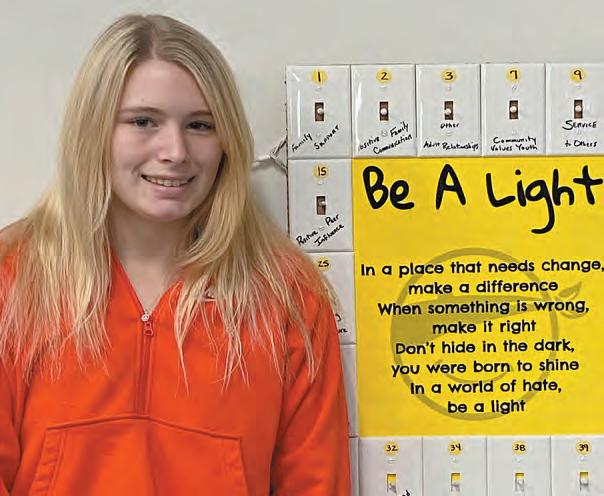 1
Family
Support
2
Positive Family
Communication
3
Other
Adult Relationships
7
Community
Values Youth
9
SERVICE
to Others
15
Positive Peer
Influence
25
Be A Light
In a place that needs change,
make a difference
When something is wrong,
make it right
Don't hide in the dark,
you were born to shine
In a world of hate,
be a light
32
34
38
39